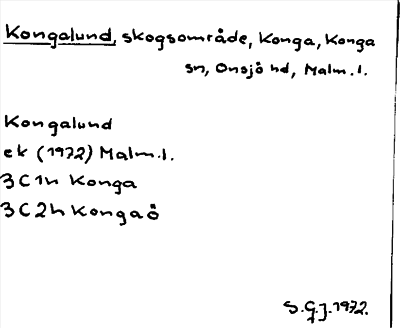 Kongalund, skogsområde, Konga, Konga
sn, Onsjö hd, Malm.l.
Kongalund
ek (1972) Malm.l.
3C1h Konga
3C2h Kongaö
S.G.J. 1972.